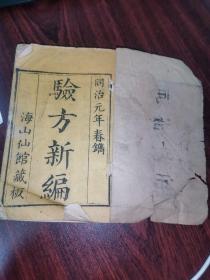 同治元年春鐫
驗方新編
海山仙館藏板